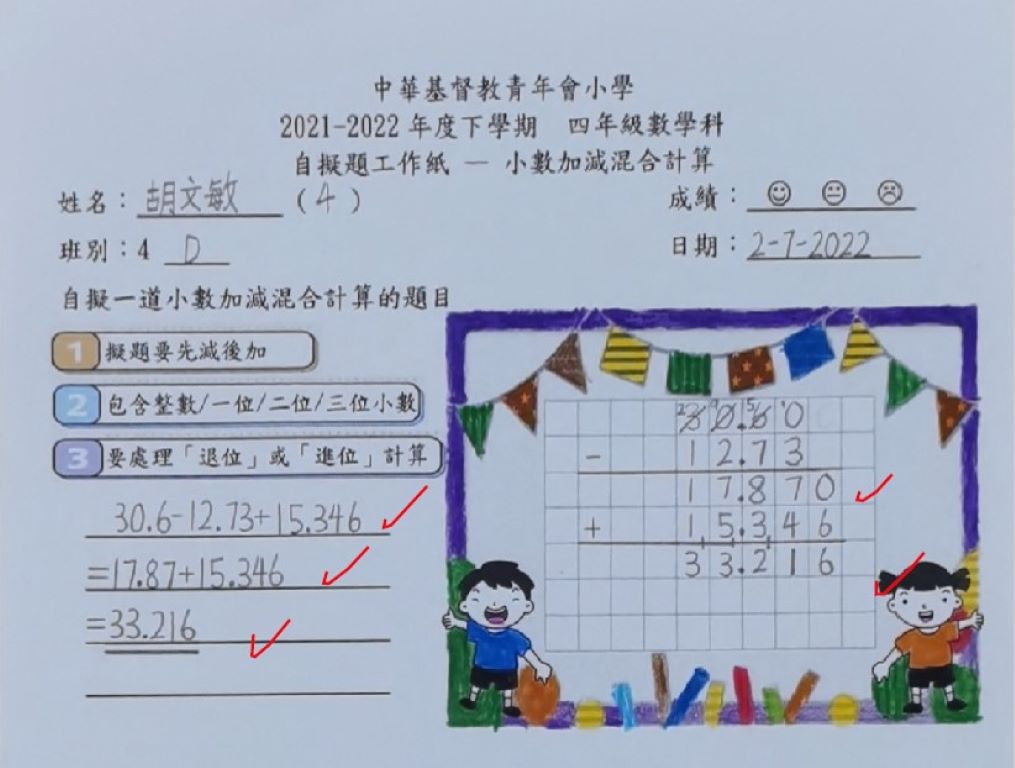 中華基督教青年會小學
2021-2022 年度下學期 四年級數學科
自擬題工作紙 — 小數加減混合計算
姓名：胡文敏 （4） 成績：
班別：4 D 日期：2-7-2022
自擬一道小數加減混合計算的題目
1 擬題要先減後加
2 包含整數/一位/二位/三位小數
3 要處理「退位」或「進位」計算
30.6-12.73+15.346
=17.87+15.346
=33.216
30.60
- 12.73
17.870
+ 15.346
33.216